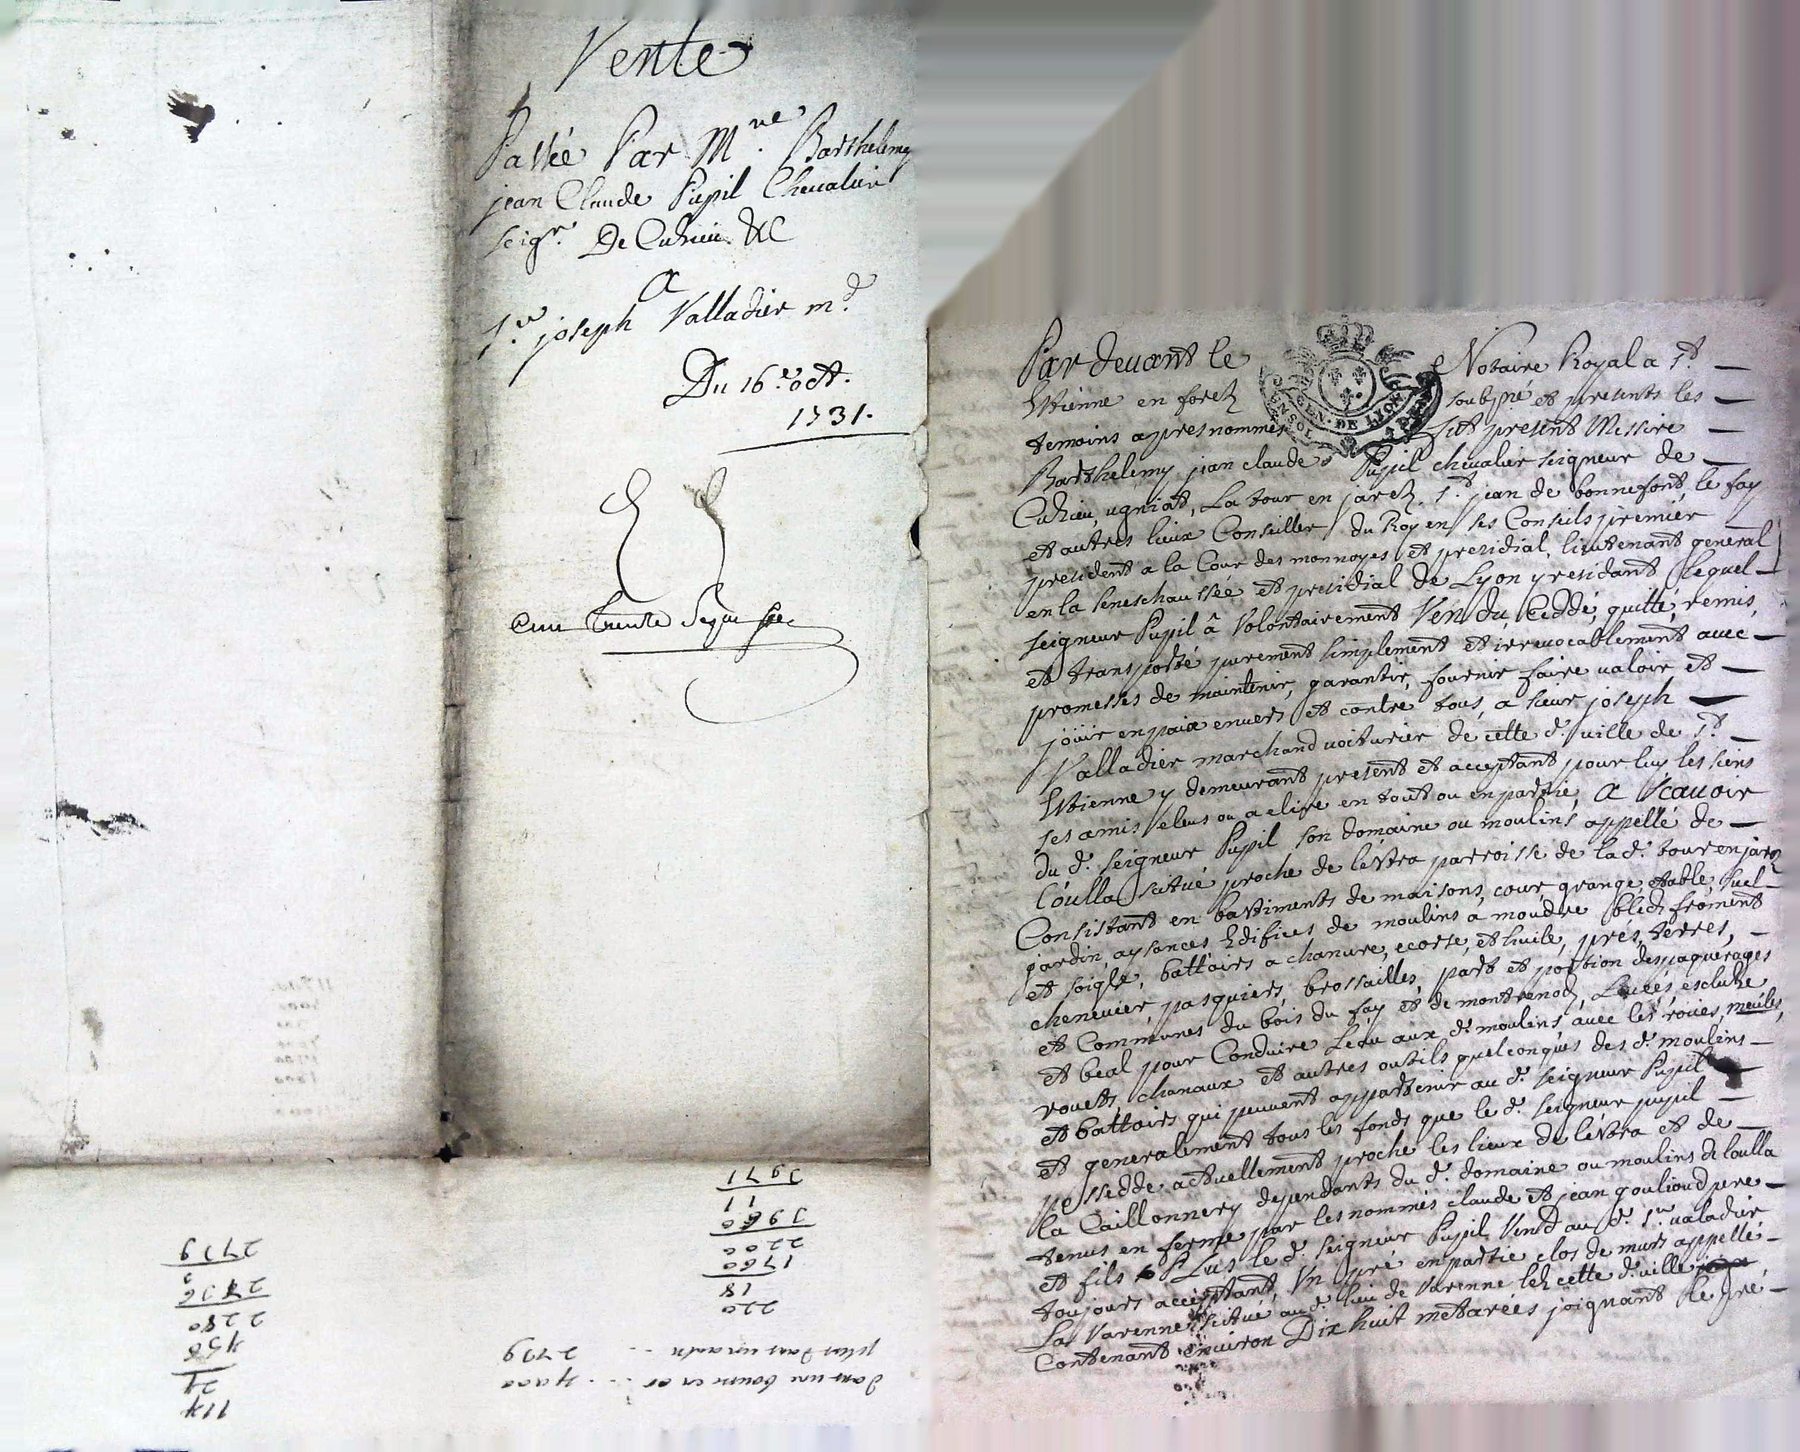 Vente
Passée Par M.re Barthelemy
jean Claude Pupil Chevalier
seigr. De Cuzieu &C
A
Sr. joseph Valladier md.
Du 16e. oct.
1731.
3971
11
3960
2200
1760
18
220
2739
2736
2280
456
24
114
plus dans un autre .. 2739
dans un bourse en or ... 4000
Par devant le Notaire Royal a St.
Etienne en forez soubzné et presents les
temoins apres nommés fut present Messire
GEN. DE LYON
Barthelemy jean claude Pupil chevalier seigneur de
Cuzieu, ugniat, La tour en jarez, St. jean de bonnefont, le fay
et autres lieux Conseiller du Roy en ses Conseils premier
president a la Cour des monnoyes et presidial, lieutenant general
en la seneschaussée et presidial de Lyon y residant Lequel
seigneur Pupil â Volontairement Vendu, Ceddé, quitté, remis,
et transporté purement simplement et irrevocablement avec
promesses de maintenir, garantir, fournir faire valoir et
joüir en paix envers et contre tous, a sieur joseph
Valladier marchand voiturier de cette d. ville de St.
Etienne y demeurant present et acceptant pour luy les siens
ses amis eleus ou a elire en tout ou en partie, A Scavoir
du d. seigneur Pupil son domaine ou moulins appellé de
Coulla scitué proche de lêtra parroisse de la d. tour en jarez
Consistant en bastiments de maisons, cour, grange, etable, suel
jardin, aysances, Edifices de moulins à moudre bled froment
et soigle, battoirs a chanvre, ecorse, et huile, prés, terres,
chenevier, pasquiers, brossailles, part et portion des paquerages
et Communes du bois du fay et de montrenod, Levées escluze
et beal pour Conduire Leau aux d. moulins, avec les roües, meules,
rouets, chanaux et autres outils quelconques des d. moulins
et battoirs qui peuvent appartenir au d. seigneur Pupil
et generalement tous les fonds que le d. seigneur pupil
possedde actuellement proche les lieux de lêtra et de
la Caillonnery dependants du d. domaine ou moulins de Coulla
tenus en ferme par les nommés claude et jean goulioud pere
et fils Plus le d. seigneur Pupil Vend au d. Sr. valadier
toujours acceptant, Un pré en partie clos de murs appellé
La Varenne scitué au d. lieu de Varenne lez cette d. ville
Contenant environ Dix huit metarées joignant le pré